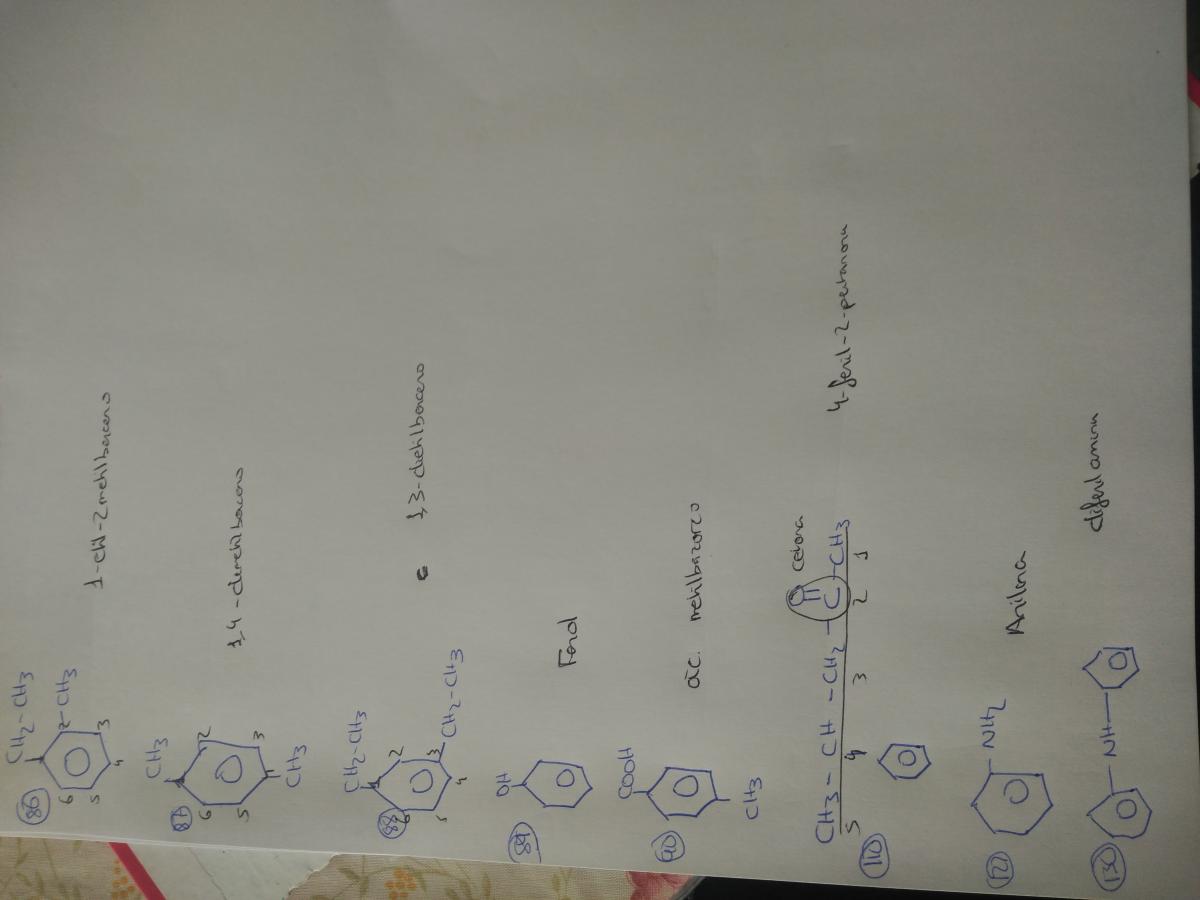 86
CH2-CH3
-CH3
2
3
4
5
6
1-etil-2metilbenceno
87
CH3
2
3
5
6
CH3
1,4-dimetilbenceno
88
CH2-CH3
2
3
4
5
6
CH2-CH3
1,3-dietilbenceno
89
OH
Fenol
90
COOH
CH3
ác. metilbenzoico
110
O cetona
CH3-CH-CH2-C-CH3
5 4 3 2 1
4-fenil-2-pentanona
127
-NH2
Anilina
130
-NH-
difenilamina